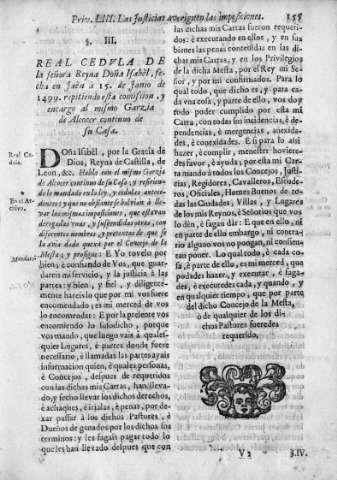 Priv. LIII. Las Justicias averiguen las imposiciones. 155
§. III.
REAL CEDVLA DE
la señora Reyna Doña Isabel, fe-
cha en Jaén à 15. de Junio de
1499. repitiendo esta comision, y
encargo al mismo Garzia
de Alcocer continuo de
su Casa.
Real Ce-
dula.
DOña Isabel, por la Gracia de
Dios, Reyna de Castilla, de
Leon, &c. Habla con el mismo Garzia
de Alcocer continuo de su Casa, y
de lo mandado en la ley, y
En el Ar-
chivo.
tes, y que no obstante se bolvian à lle-
var las mismas imposiciones, que estavan
derogadas unas, y suspendidas otras, con
diferentes nombres, y pretextos de que se
la avia dado quexa por el Concejo de la
Mandará
Mesta; y prosigue: E Yo tovelo por
bien, è consando de Vos, que guar-
dareis mi servicio, y la justicia à las
partes: y bien, y fiel, y diligente-
mente hareis lo que por mi vos fuere
encomendado; es mi merced de vos
lo encomendar: E por la presente vos
encomiendo lo susodicho, porque
vos mando, que luego vais à quales-
quier Lugares, è partes donde fuere
necessario, è llamadas las partes ayais
informacion quien, è quales personas,
è Concejos, despues de requeridos
con las dichas mis Cartas, han lleva-
do, y fecho llevar los dichos derechos,
è achaques, è à penar, por de-
xar passar à los dichos Pastores, è
Dueños de ganados por los dichos sus
terminos: y les fagais pagar todo lo
que les han llevado despues que con
las dichas mis Cartas fueron requeri-
dos: è executando en ellos, y en sus
bienes las penas contenidas en las di-
chas mis Cartas, y en los Privilegios
de la dicha Mesta, por el Rey mi Se-
ñor, y por mi confirmados. Para lo
qual todo, que dicho es, y para ca-
da vna cosa, y parte de ello, vos doy
todo poder cumplido por esta mi
Carta, con todas incidencias, è de-
pendencias, è mergencias, anexida-
des, è conexidades. Es si para lo assi
hazer, è complir, menester hovieredes
favor, è ayuda; por esta mi Carta
mando à todos los Concejos, Justicias,
Regidores, Cavalleros, Escude-
ros, Oficiales, Homes Buenos de to-
das las Ciudades, Villas, y Lugares
de los mis Reynos, è Señorios que vos
lo dèn, è fagan dar: E que en ello, ni
en parte de ello embargo, ni contra-
rio alguno vos no pongan, ni consien-
tan poner. Lo qual todo, è cada co-
sa, è parte de ello, es mi merced, que
podades hazer, y executar, è faga-
des, è executedes cada, y quando, y
en qualquier tiempo, que por parte
del dicho Concejo de la Mesta,
ò de qualquier de los di-
chos Pastores fueredes
requerido.
V 2 §.IV.